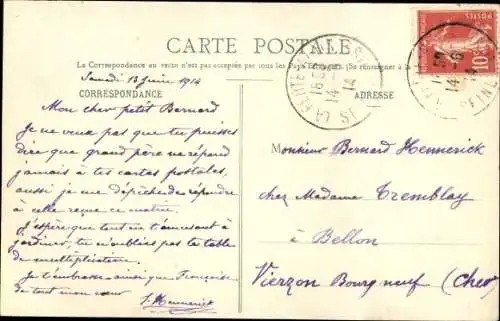 CARTE POSTALE
La Correspondance au recto n'est pas acceptée par tous les Pays (Se renseigner à
Samedi 13 juin 1914
CORRESPONDANCE
ADRESSE
Mon cher petit Bernard
Je ne veux pas que tu puisses
dire que grand père ne répond
jamais à tes cartes postales,
aussi je me dépêche de répondre
à celle reçue ce matin.
J'espère que tout en t'amusant à
jardiner, tu n'oublies pas la table
de multiplication.
Je t'embrasse ainsi que Françoise
de tout mon cœur
J. Hennerick
Monsieur Bernard Hennerick
chez Madame Tremblay
à Bellon
Vierzon Bourgneuf (Cher)
POSTES
10
14